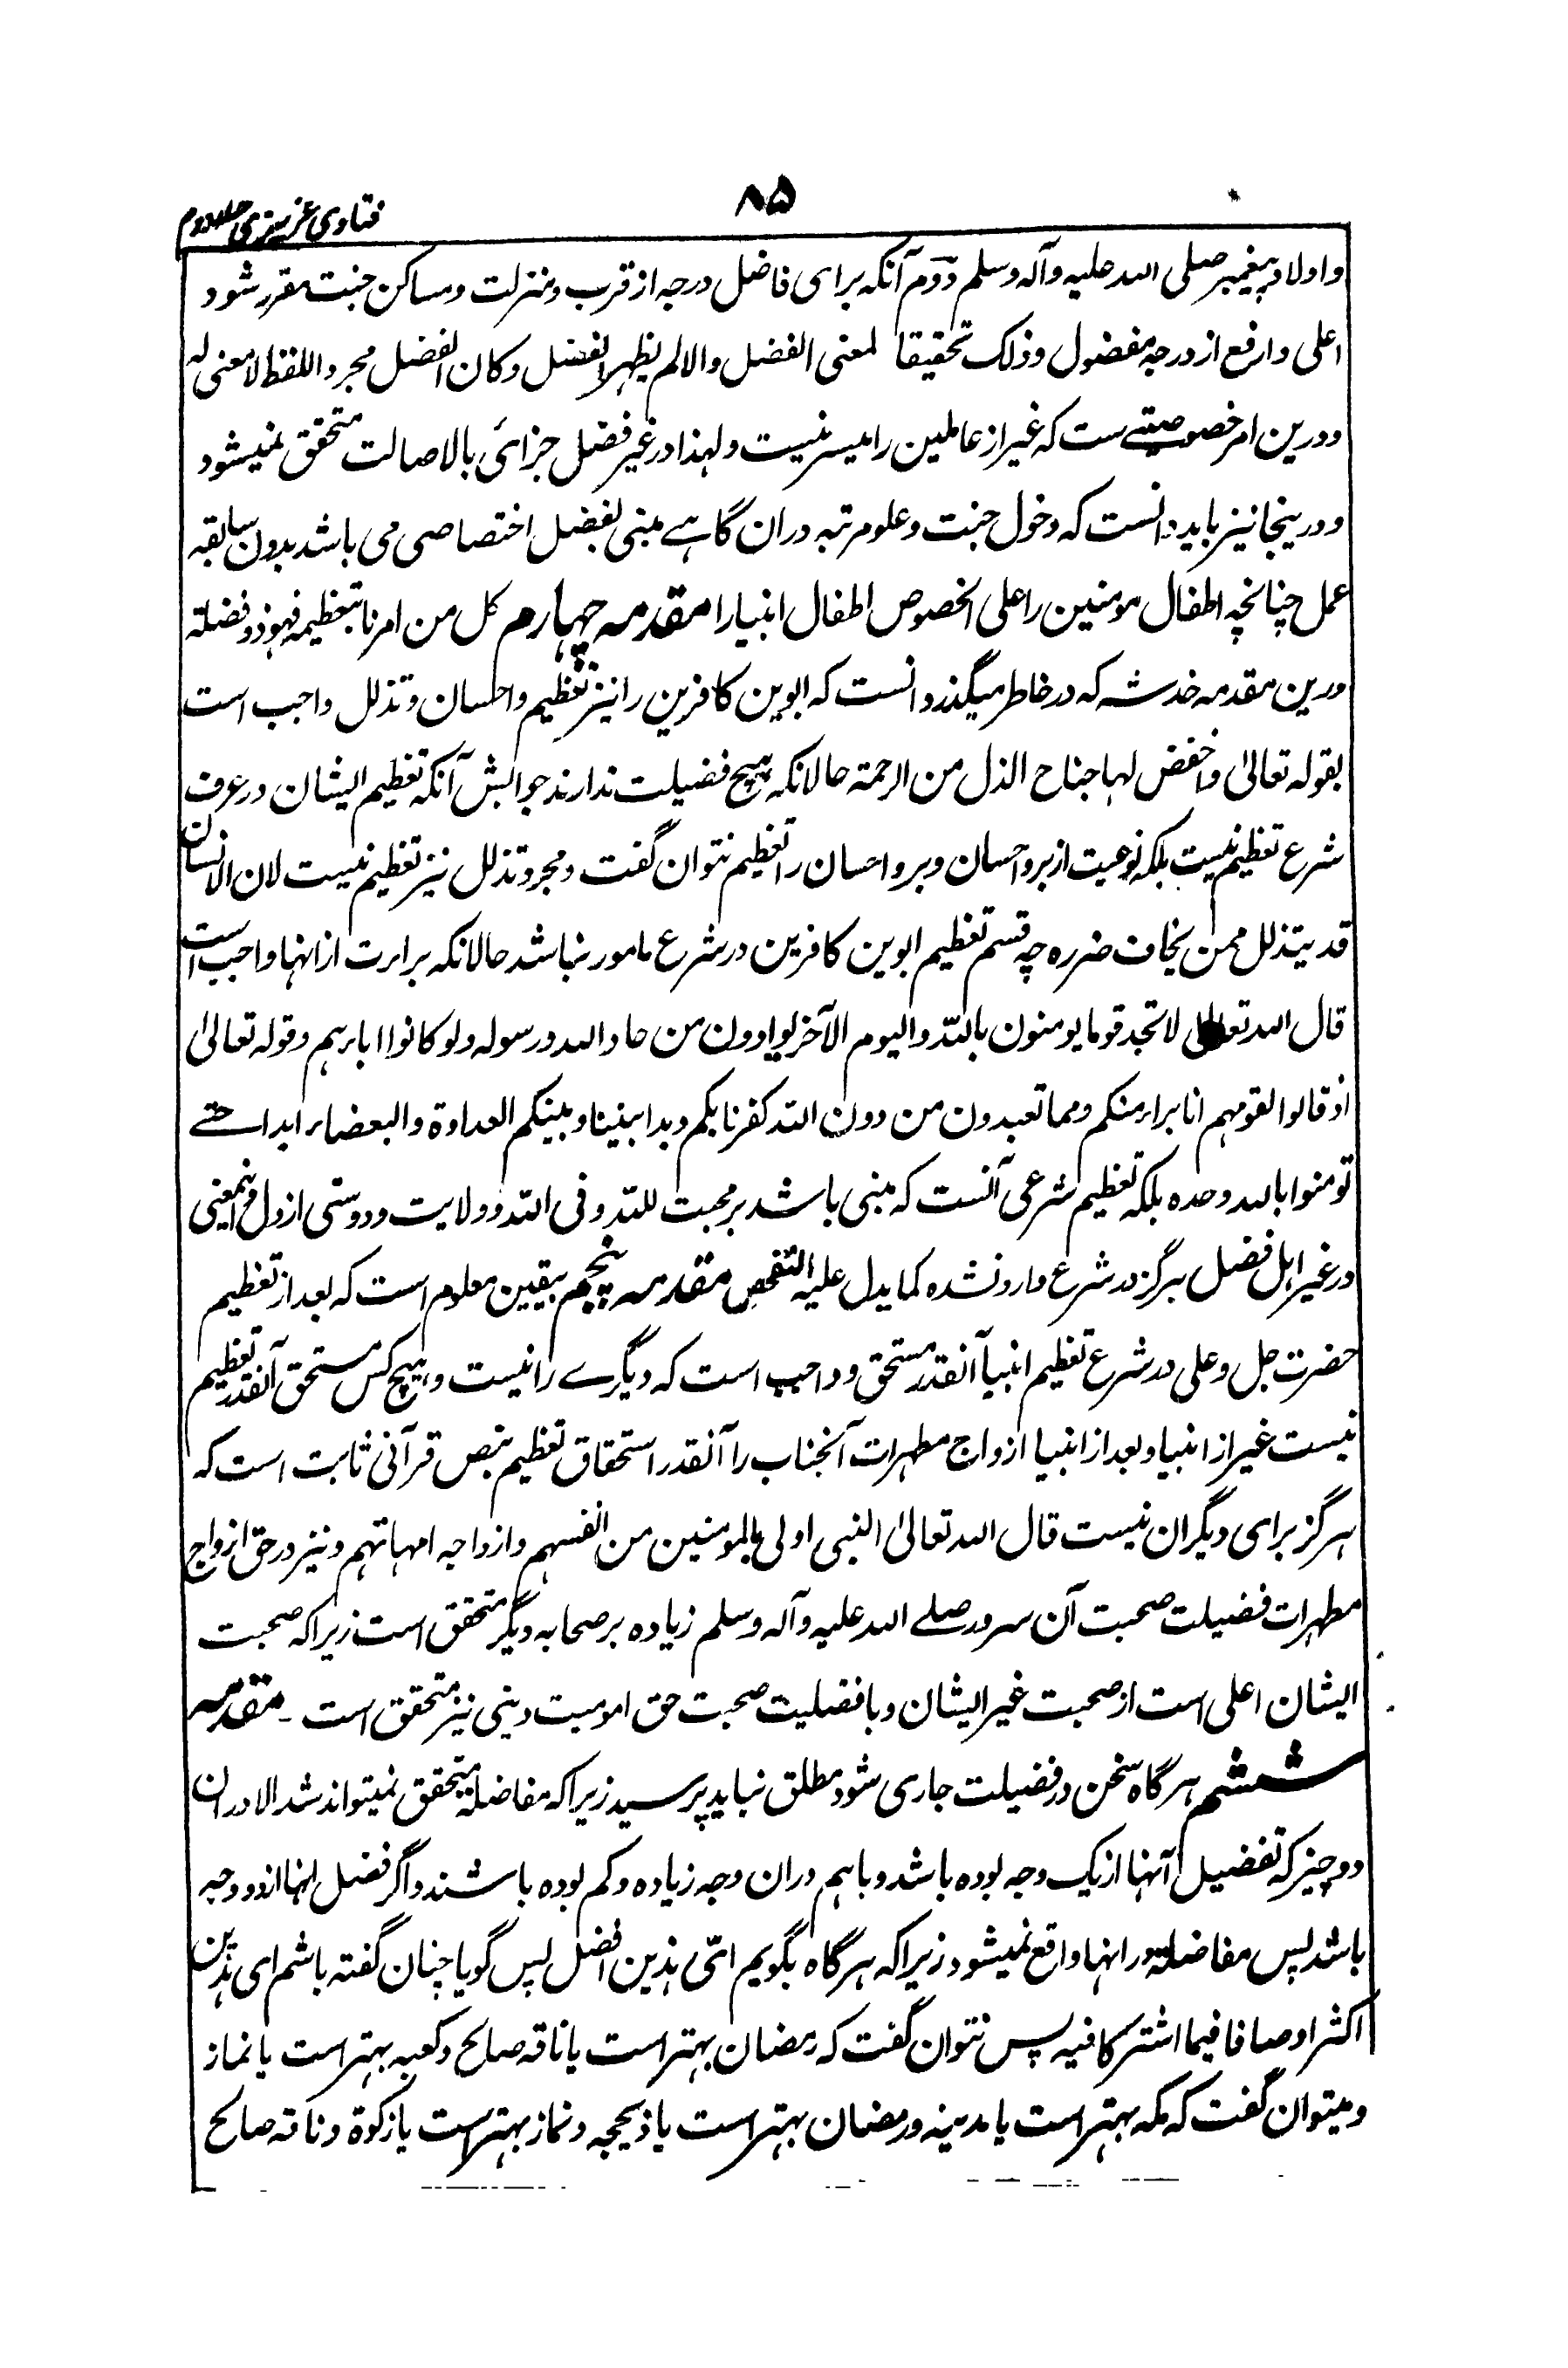 ۸۵
فتاوی عزیزی جلد دوم
و اولاد پیغمبر صلی اللہ علیہ وآلہ وسلم دوم آنکہ برای فاضل درجہ از قرب و منزلت و مساکن جنت مقرر شود
اعلی و ارفع از درجہ مفضول و ذلک تحقیقا لمعنی الفضل والا لم یظہر الفضل و کان الفضل مجرد اللفظ لا معنی لہ
و درین امر خصوصیتے ست کہ غیر از عاملین را میسر نیست و لہذا در غیر فضل جزائی بالاصالت متحقق نمیشود
و درینجا نیز باید دانست کہ دخول جنت و علو مرتبہ دران گاہے مبنی بفضل اختصاصی می باشد بدون سابقہ
عمل چنانچہ اطفال مومنین را علی الخصوص اطفال انبیا را مقدمہ چہارم کل من امرنا بتعظیمہ فہو ذو فضلة
درین مقدمہ خدشہ کہ در خاطر میگذرد انست کہ ابوین کافرین را نیز تعظیم و احسان و تذلل واجب است
بقولہ تعالیٰ واخفض لہما جناح الذل من الرحمة حالانکہ ہیچ فضیلت ندارند جوابش آنکہ تعظیم ایشان در عرف
شرع تعظیم نیست بلکہ نوعیت از بر و احسان و بر و احسان را تعظیم نتوان گفت و مجرد تذلل نیز تعظیم نیست لان الانسان
قد یتذلل ممن یخاف ضررہ چہ قسم تعظیم ابوین کافرین در شرع مامور نباشد حالانکہ براءت از انہا واجب است
قال اللہ تعالی لا تجد قوما یومنون باللہ والیوم الآخر یوادون من حاد اللہ ورسولہ ولو کانوا اباءہم و قولہ تعالیٰ
اذ قالوا لقومہم انا براء منکم ومما تعبدون من دون اللہ کفرنا بکم وبدا بیننا وبینکم العداوة والبغضاء ابدا حتے
تومنوا باللہ وحدہ بلکہ تعظیم شرعی آنست کہ مبنی باشد بر محبت للہ و فی اللہ و ولایت و دوستی از دل و اینمعنی
در غیر اہل فضل ہرگز در شرع وارد نشدہ کما یدل علیہ التفحص مقدمہ پنجم بیقین معلوم است کہ بعد از تعظیم
حضرت جل و علی در شرع تعظیم انبیا آنقدر مستحق و واجب است کہ دیگرے را نیست و ہیچ کس مستحق آنقدر تعظیم
نیست غیر از انبیا و بعد از انبیا ازواج مطہرات آنجناب را آنقدر استحقاق تعظیم بنص قرآنی ثابت است کہ
ہرگز برای دیگران نیست قال اللہ تعالیٰ النبی اولی بالمومنین من انفسہم وازواجہ امہاتہم و نیز در حق ازواج
مطہرات فضیلت صحبت آن سرور صلے اللہ علیہ وآلہ وسلم زیادہ بر صحابہ دیگر متحقق است زیراکہ صحبت
ایشان اعلی است از صحبت غیر ایشان و با فضلیت صحبت حق امومیت دینی نیز متحقق است ۔ مقدمہ
ششم ہرگاہ سخن در فضیلت جاری شود مطلق نباید پرسید زیراکہ مفاضلة متحقق نمیتواند شد الا دران
دو چیز کہ تفضیل آنہا از یک وجہ بودہ باشد و باہم دران وجہ زیادہ و کم بودہ باشند و اگر فضل انہا از دو وجہ
باشد پس مفاضلة در انہا واقع نمیشود زیراکہ ہرگاہ بگویم ای ہذین افضل پس گویا چنان گفتہ باشم ای ہذین
اکثر اوصافا فیما اشترکا فیہ پس نتوان گفت کہ رمضان بہتر است یا ناقہ صالح و کعبہ بہتر است یا نماز
و میتوان گفت کہ مکہ بہتر است یا مدینہ و رمضان بہتر است یا ذیحجہ و نماز بہتر است یا زکوة و ناقہ صالح